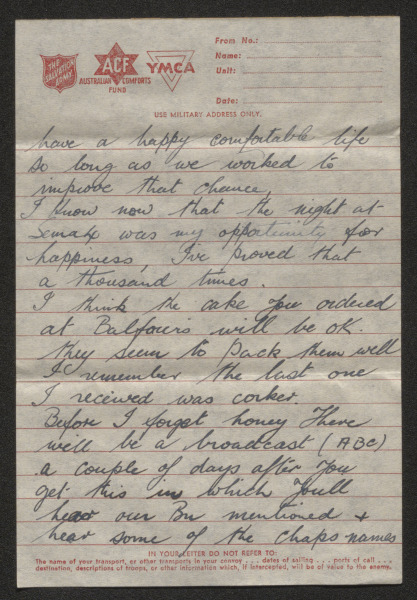 THE
SALVATION
ARMY
ACF
AUSTRALIAN COMFORTS
FUND
YMCA
From No.:
Name:
Unit:
Date:
USE MILITARY ADDRESS ONLY.
have a happy comfortable life
so long as we worked to
improve that chance.
I know now that the night at
Semah was my oppatunity for
happiness, I've proved that
a thousand times.
I think the cake you ordered
at Balfours will be OK.
they seem to pack them well
I remember the last one
I received was corker.
Before I forget honey There
will be a broadcast (ABC)
a couple of days after you
get this in which you'll
hear our Bn mentioned +
hear some of the chaps names
IN YOUR LETTER DO NOT REFER TO:
The name of your transport, or other transports in your convoy . . . dates of sailing . . . ports of call . . .
destination, descriptions of troops, or other information which, if intercepted, will be of value to the enemy.